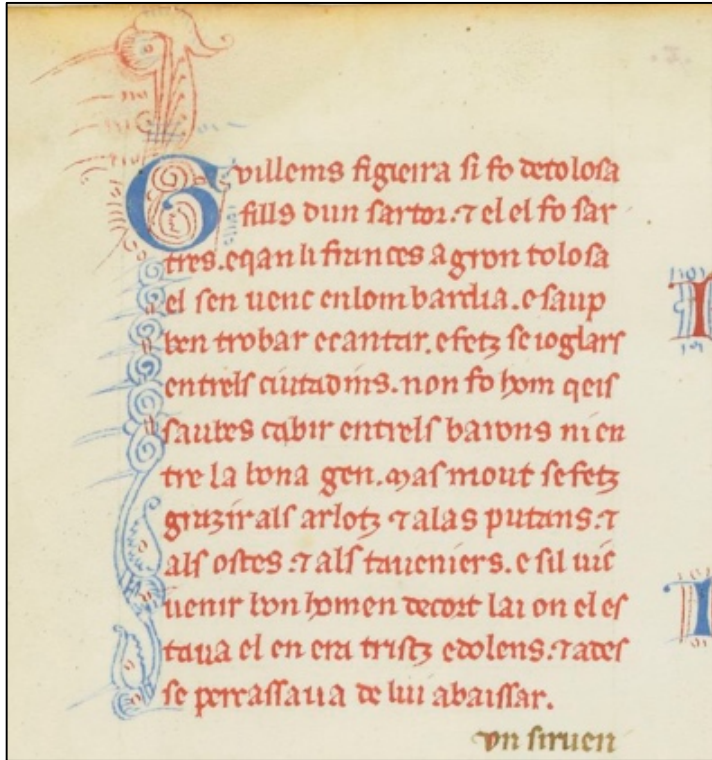 Guillems figieira si fo detolosa
fills dun sartor. ⁊ el el fo sar
tres. eqan li frances agron tolosa
el sen uenc enlombardia. e saup
ben trobar ecantar. efetz se ioglars
entrels ciutadins. non fo hom qeis
saubes cabir entrels barons ni en
tre la bona gen. mas mout sefetz
grazir als arlotz ⁊ alas putans. ⁊
als ostes. ⁊ als tauerniers. e sil
uenir bon homen decort lai on el es
taua el en era tristz edolens. ⁊ ades
se de lui abaissar.
vn siruen